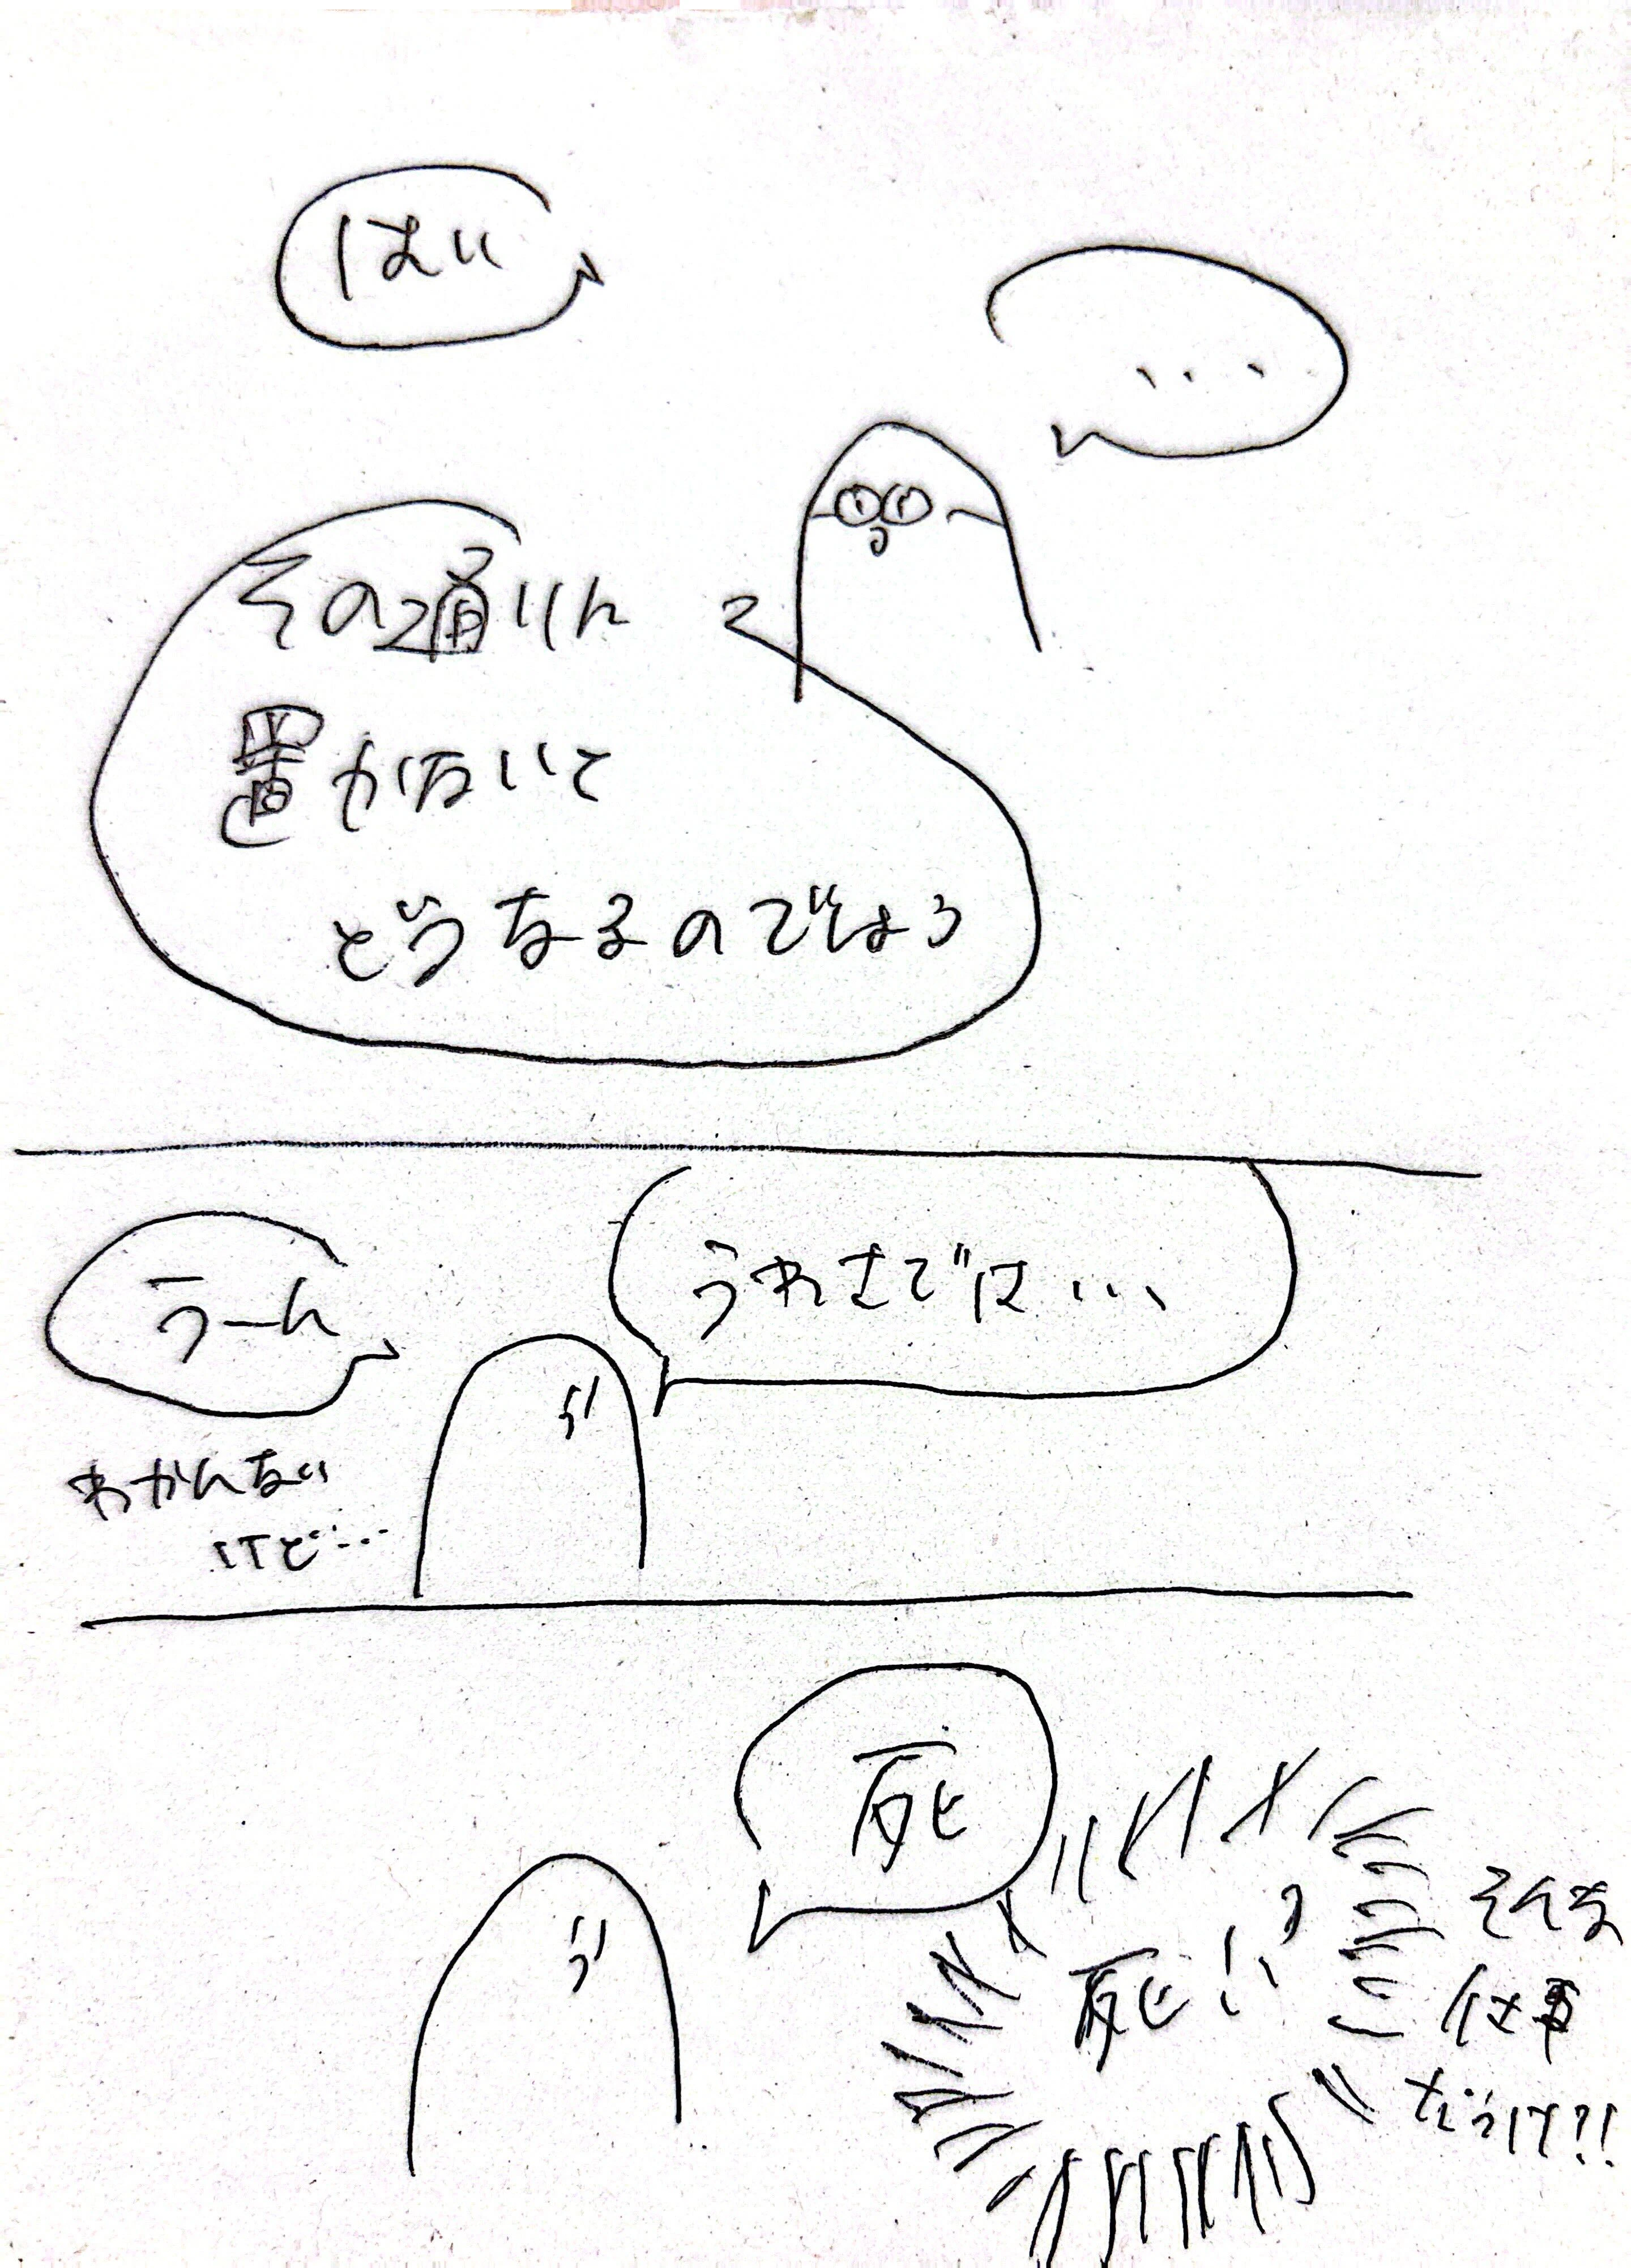 はい
...
その通りに
置かないと
どうなるのでしょう
うーん
うわさでは...
わかんない
けど...
死
死!?
そんな
仕事
だっけ?!